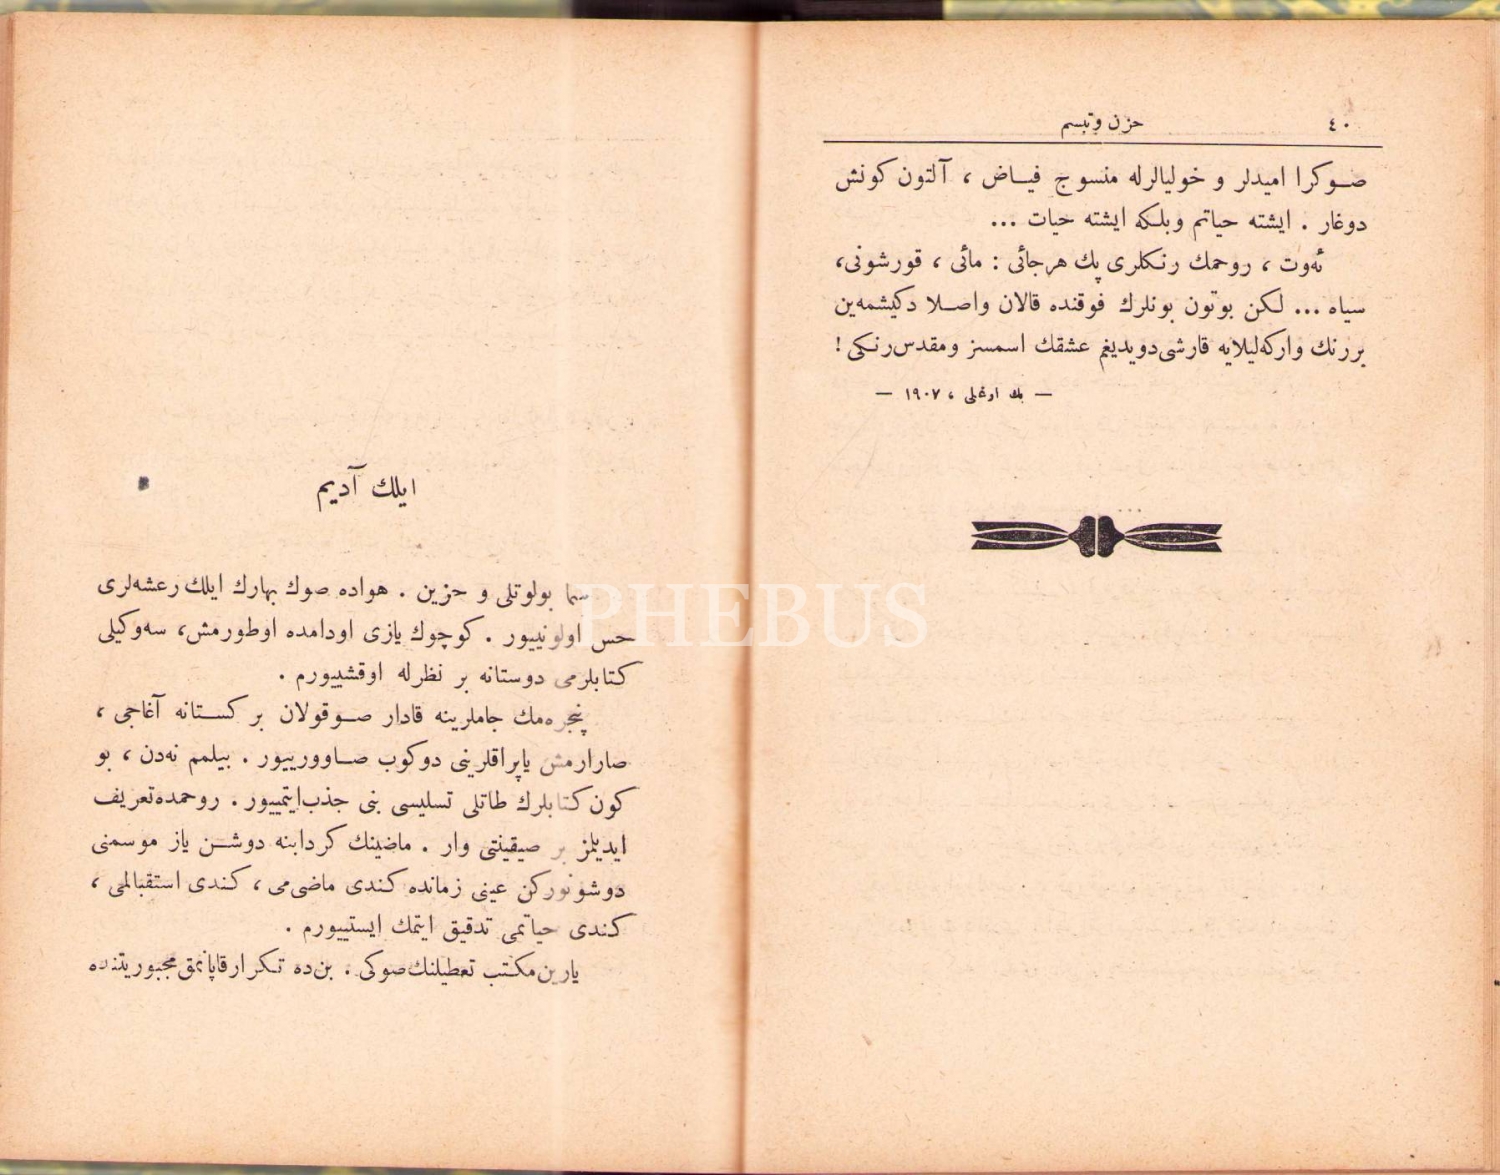 ٤٠
حزن وتبسم
صوكرا اميدلر و خوليالرله منسوج فياض ، آلتون كونش
دوغار . ايشته حياتم وبلكه ايشته حيات ...
ئەوت ، روحمك رنكلرى پك هرجائى : مائى ، قورشونى،
سياه ... لكن بوتون بونلرك فوقنده قالان واصلا دكيشمەين
بررنك واركەليلايه قارشى دويديغم عشقك اسمسز ومقدس رنكى !
— بك اوغلى ، ١٩٠٧ —
ايلك آديم
سما بولوتلى و حزين . هواده صوك بهارك ايلك رعشەلرى
حس اولونييور . كوچوك يازى اودامده اوطورمش، سەوكيلى
كتابلرمى دوستانه بر نظرله اوقشييورم .
پنجرەمك جاملرينه قادار صوقولان بر كستانه آغاجى ،
صارارمش ياپراقلرينى دوكوب صاوورييور . بيلمم نەدن ، بو
كون كتابلرك طاتلى تسليسى بنى جذب ايتمييور . روحمده تعريف
ايديلمز بر صيقينتى وار . ماضينك كردابنه دوشن ياز موسمنى
دوشونوركن عينى زمانده كندى ماضىمى ، كندى استقبالمى ،
كندى حياتمى تدقيق ايتمك ايستييورم .
يارين مكتب تعطيلنك صوكى . بن ده تكرار قاپانمق مجبوريتنده
PHEBUS